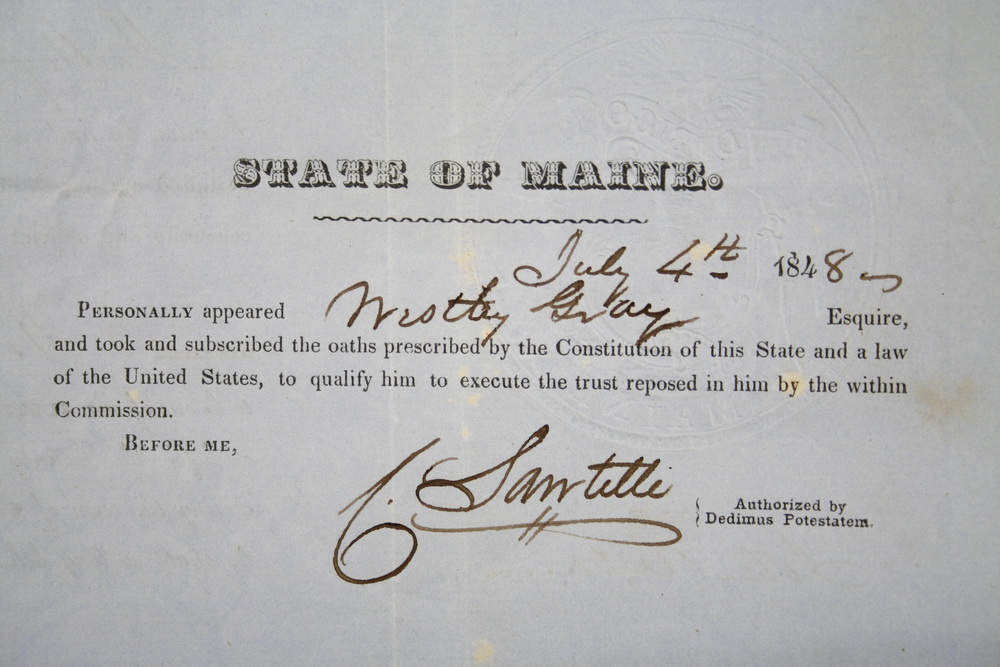 STATE OF MAINE.
July 4th 1848
PERSONALLY appeared Westley Gray Esquire,
and took and subscribed the oaths prescribed by the Constitution of this State and a law
of the United States, to qualify him to execute the trust reposed in him by the within
Commission.
BEFORE ME,
C. Sawtelle
Authorized by
Dedimus Potestatem.